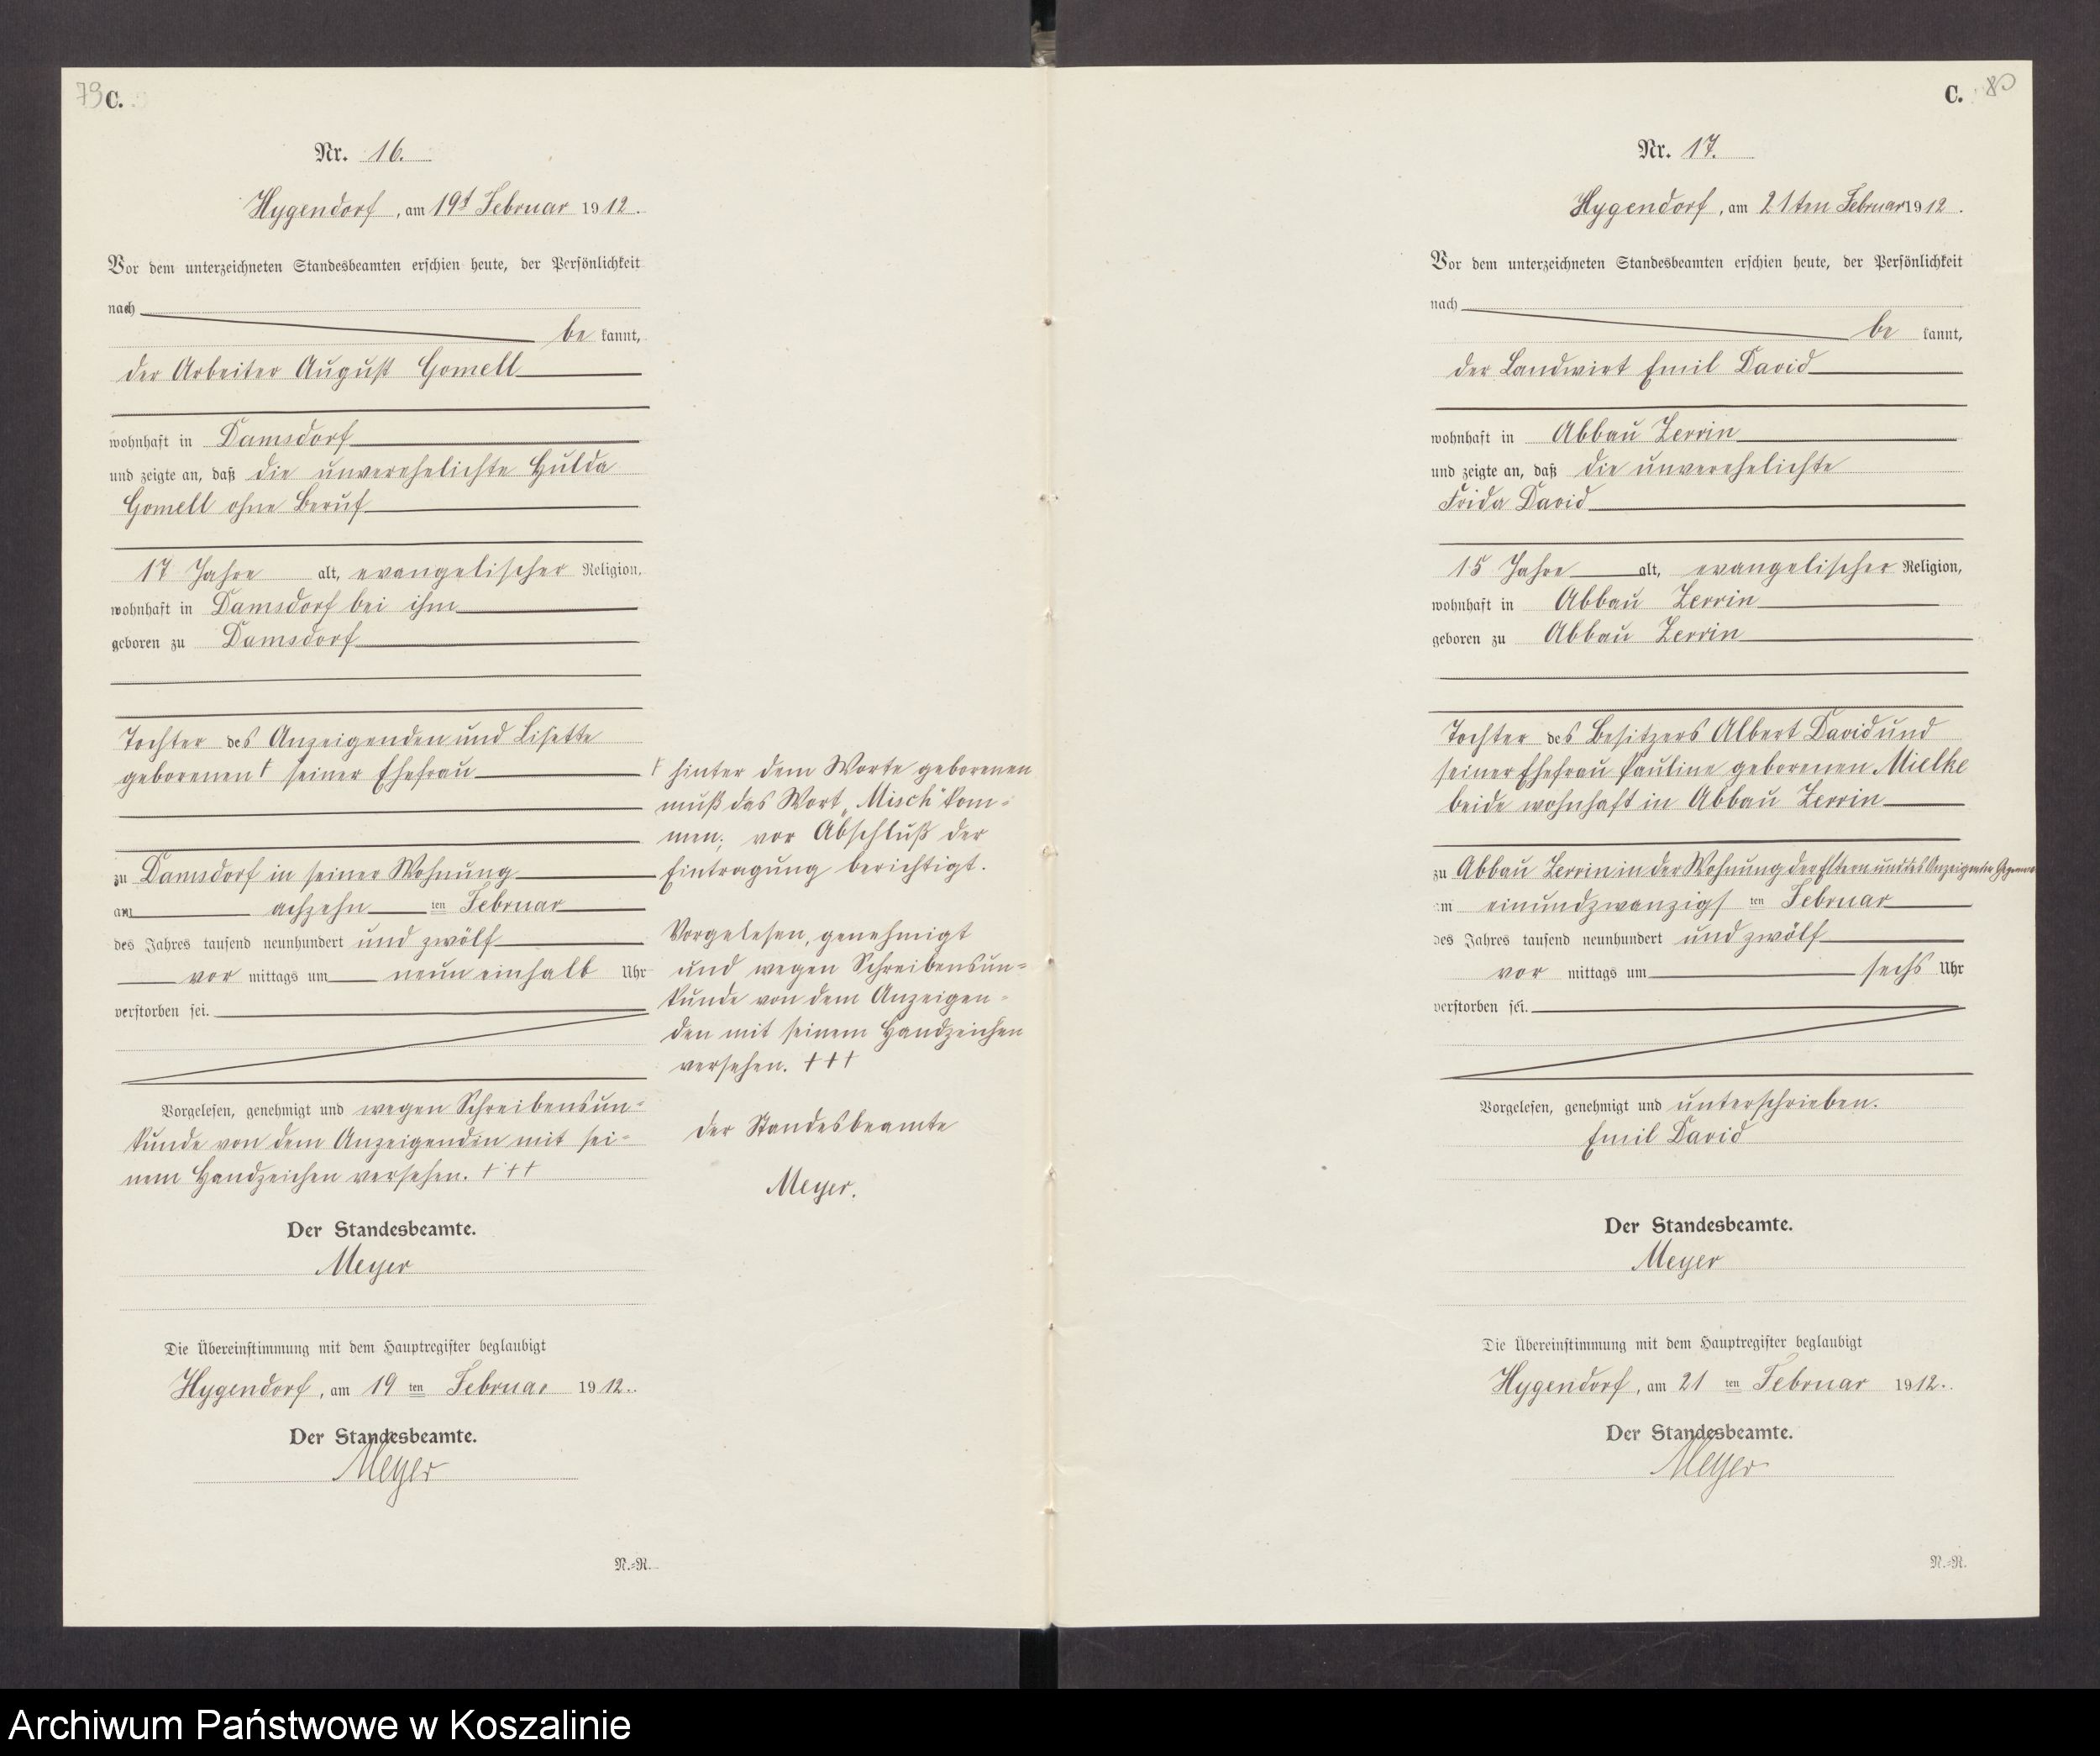 79 C.
Nr. 16.
Hygendorf, am 19t Februar 1912.
Vor dem unterzeichneten Standesbeamten erschien heute, der Persönlichkeit
nach
be kannt,
der Arbeiter August Gomell
wohnhaft in Damsdorf
und zeigte an, daß die unverehelichte Hulda
Gomell ohne Beruf
17 Jahre alt, evangelischer Religion,
wohnhaft in Damsdorf bei ihm
geboren zu Damsdorf
Tochter des Anzeigenden und Lisette
geborenen † seiner Ehefrau
zu Damsdorf in seiner Wohnung
am achzehn ten Februar
des Jahres tausend neunhundert und zwölf
vor mittags um neun einhalb Uhr
verstorben sei.
Vorgelesen, genehmigt und wegen Schreibensun-
kunde von dem Anzeigenden mit sei-
nem Handzeichen versehen. +++
Der Standesbeamte.
Meyer
Die Übereinstimmung mit dem Hauptregister beglaubigt
Hygendorf, am 19 ten Februar 1912.
Der Standesbeamte.
Meyer
N.=R.
† hinter dem Worte geborenen
muß das Wort „Misch" kom-
men; vor Abschluß der
Eintragung berichtigt.
Vorgelesen, genehmigt
und wegen Schreibensun-
kunde von dem Anzeigen-
den mit seinem Handzeichen
versehen. +++
der Standesbeamte
Meyer.
C. 80
Nr. 17.
Hygendorf, am 21ten Februar 1912.
Vor dem unterzeichneten Standesbeamten erschien heute, der Persönlichkeit
nach
be kannt,
der Landwirt Emil David
wohnhaft in Abbau Zerrin
und zeigte an, daß die unverehelichte
Frida David
15 Jahre alt, evangelischer Religion,
wohnhaft in Abbau Zerrin
geboren zu Abbau Zerrin
Tochter des Besitzers Albert David und
seiner Ehefrau Pauline geborenen Mielke
beide wohnhaft in Abbau Zerrin
zu Abbau Zerrin in der Wohnung der Eltern und des Anzeigenden
am einundzwanzigs ten Februar
des Jahres tausend neunhundert und zwölf
vor mittags um sechs Uhr
verstorben sei.
Vorgelesen, genehmigt und unterschrieben.
Emil David
Der Standesbeamte.
Meyer
Die Übereinstimmung mit dem Hauptregister beglaubigt
Hygendorf, am 21 ten Februar 1912.
Der Standesbeamte.
Meyer
N.=R.
Archiwum Państwowe w Koszalinie